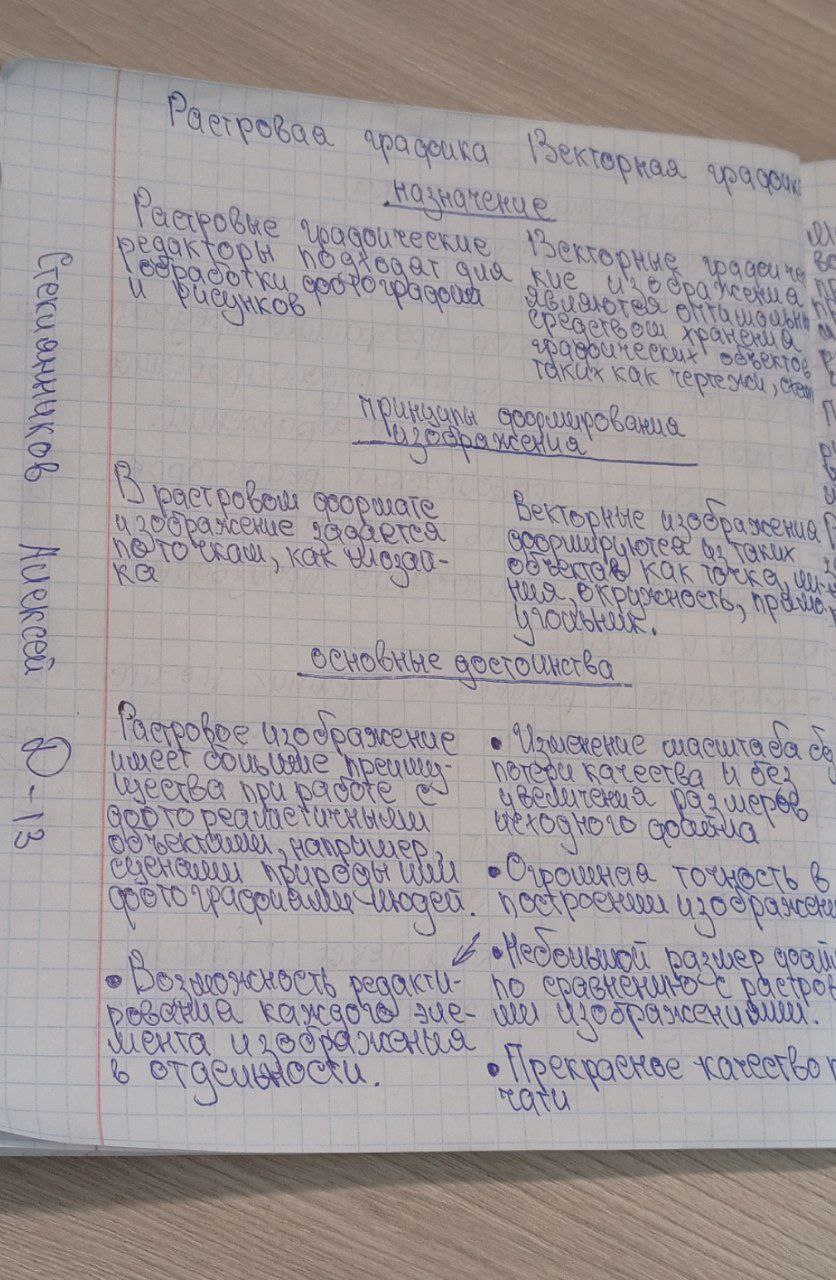 Растровая графика Векторная график
назначение
Растровые графические
редакторы подходят для
обработки фотографий
и рисунков
Векторные графичес
кие изображения
являются оптимальн
средством хранения
графических объектов
таких как чертежи, схем
принципы формирования
изображения
В растровом формате
изображение задаётся
по точкам, как мозаи-
ка
Векторные изображения
формируются из таких
объектов как точка, ли-
ния, окружность, прямо
угольник.
основные достоинства
Растровое изображение
имеет большие преиму-
щества при работе с
фотореалистичными
объектами, например,
сценами природы или
фотографиями людей.
• Возможность редакти-
рования каждого эле-
мента изображения
в отдельности.
• Изменение масштаба бе
потери качества и без
увеличения размеров
исходного файла
• Огромная точность в
построении изображени
• Небольшой размер фай
по сравнению с растров
ми изображениями.
• Прекрасное качество п
чати
Стекианников Алексей Ф-13